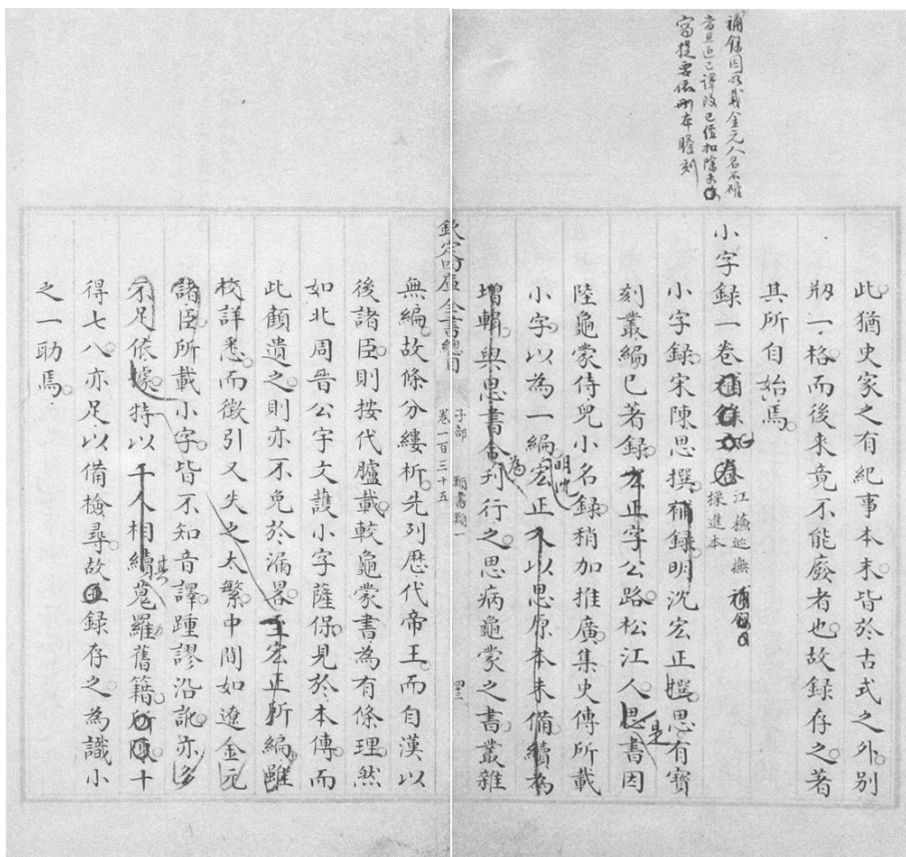 補錄因所載金元人名不確
當且近已譯改已經扣除去
寫提要依刪本謄刻
此猶史家之有紀事本末皆於古式之外別
剏一格而後来竟不能廢者也故録存之著
其所自始焉
小字録一卷補錄六卷江蘇巡撫採進本
小字録宋陳思撰補録明沈宏正撰思有寶
刻叢編已著録宏正字公路松江人思書因
是
陸龜蒙侍兒小名録稍加推廣集史傳所載
小字以為一編宏正又以思原本未備續為
明沈
增輯與思書合刋行之思病龜蒙之書叢雜
為
欽定四庫全書總目
子部 類書類一
卷一百三十五
無編故條分縷析先列歴代帝王而自漢以
後諸臣則按代臚載較龜蒙書為有條理然
如北周晋公宇文護小字薩保見於本傳而
此顧遺之則亦不免於漏畧至宏正所編雖
校詳悉而徵引又失之太繁中間如遼金元
諸臣所載小字皆不知音譯踵謬沿訛亦多
不足依據特以千人相續蒐羅舊籍所凍十
其
得七八亦足以備檢尋故並録存之為識小
之一助焉